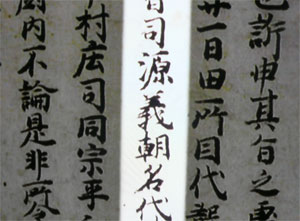 訴申其旨之
廿一日田所目代
司源義朝名代
村庄司同宗平
内不論是非所令